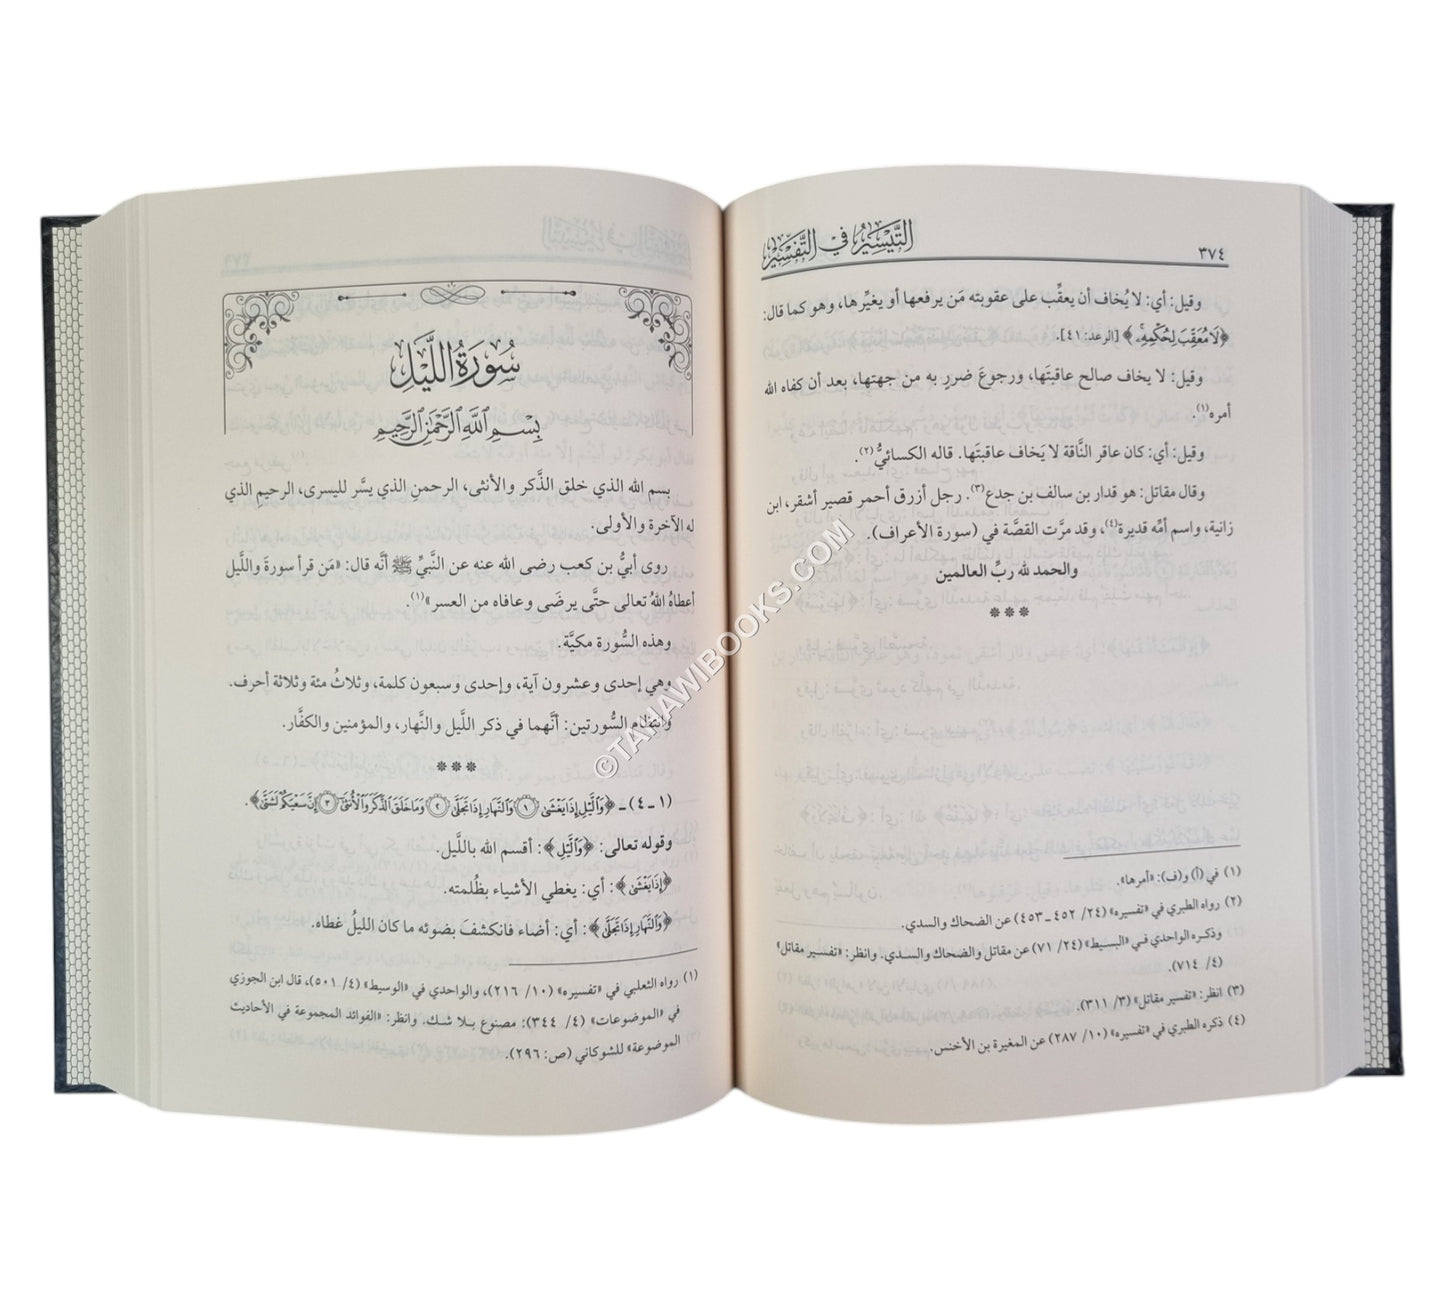 ٣٧٤
التَّيسيرُ في التَّفسيرِ
وقيل: أي: لا يُخاف أن يعقِّب على عقوبته مَن يرفعها أو يغيِّرها، وهو كما قال:
﴿لَا مُعَقِّبَ لِحُكْمِهِ﴾ [الرعد: ٤١].
وقيل: لا يخاف صالح عاقبتَها، ورجوعَ ضررٍ به من جهتها، بعد أن كفاه الله
أمره(١).
وقيل: أي: كان عاقر النَّاقة لا يَخاف عاقبتَها. قاله الكسائيُّ(٢).
وقال مقاتل: هو قدار بن سالف بن جدع(٣). رجل أزرق أحمر قصير أشقر، ابن
زانية، واسم أمِّه قديرة(٤)، وقد مرَّت القصَّة في (سورة الأعراف).
والحمد لله ربِّ العالمين
***
(١) في (أ) و(ف): «أمرها».
(٢) رواه الطبري في «تفسيره» (٢٤/ ٤٥٢ ـ ٤٥٣) عن الضحاك والسدي.
وذكره الواحدي في «البسيط» (٢٤/ ٧١) عن مقاتل والضحاك والسدي. وانظر: «تفسير مقاتل»
(٤/ ٧١٤).
(٣) انظر: «تفسير مقاتل» (٣/ ٣١١).
(٤) ذكره الطبري في «تفسيره» (١٠/ ٢٨٧) عن المغيرة بن الأخنس.
سُورَةُ اللَّيْلِ
بِسْمِ ٱللَّهِ ٱلرَّحْمَٰنِ ٱلرَّحِيمِ
بسم الله الذي خلق الذَّكر والأنثى، الرحمنِ الذي يسَّر لليسرى، الرحيمِ الذي
له الآخرة والأولى.
روى أبيُّ بن كعب رضى الله عنه عن النَّبيِّ ﷺ أنَّه قال: «مَن قرأ سورةَ واللَّيل
أعطاهُ اللهُ تعالى حتَّى يرضَى وعافاه من العسر»(١).
وهذه السُّورة مكيَّة.
وهي إحدى وعشرون آية، وإحدى وسبعون كلمة، وثلاثُ مئة وثلاثة أحرف.
وانتظام السُّورتين: أنَّهما في ذكر اللَّيل والنَّهار، والمؤمنين والكفَّار.
***
(١ ـ ٤) ـ ﴿وَٱلَّيْلِ إِذَا يَغْشَىٰ ۝١ وَٱلنَّهَارِ إِذَا تَجَلَّىٰ ۝٢ وَمَا خَلَقَ ٱلذَّكَرَ وَٱلْأُنثَىٰ ۝٣ إِنَّ سَعْيَكُمْ لَشَتَّىٰ﴾.
وقوله تعالى: ﴿وَٱلَّيْلِ﴾: أقسم الله باللَّيل.
﴿إِذَا يَغْشَىٰ﴾: أي: يغطي الأشياء بظُلمته.
﴿وَٱلنَّهَارِ إِذَا تَجَلَّىٰ﴾: أي: أضاء فانكشفَ بضوئه ما كان الليلُ غطاه.
(١) رواه الثعلبي في «تفسيره» (١٠/ ٢١٦)، والواحدي في «الوسيط» (٤/ ٥٠١)، قال ابن الجوزي
في «الموضوعات» (٤/ ٣٤٤): مصنوع بلا شك. وانظر: «الفوائد المجموعة في الأحاديث
الموضوعة» للشوكاني (ص: ٢٩٦).
©TAHAWIBOOKS.COM